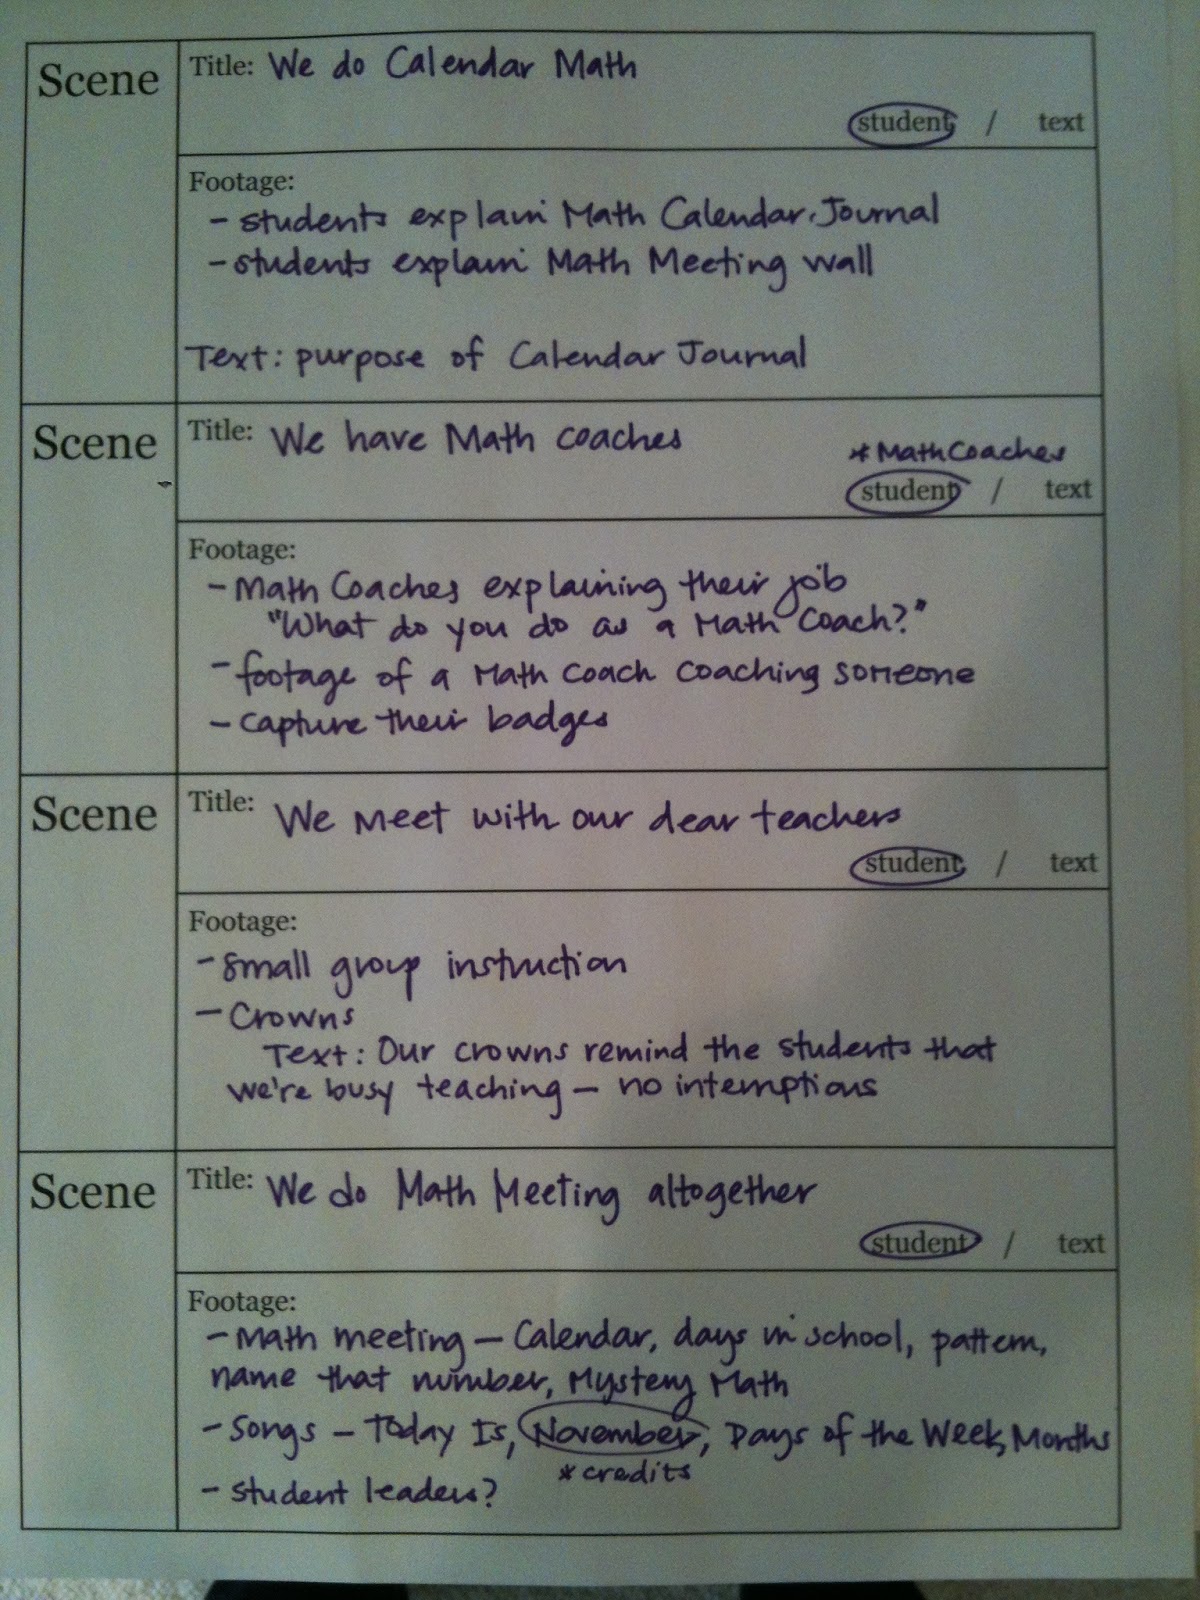 Scene
Title: We do Calendar Math
student / text
Footage:
- students explain Math Calendar Journal
- students explain Math Meeting wall
Text: purpose of Calendar Journal
Scene
Title: We have Math coaches
* Math Coaches
student / text
Footage:
- Math Coaches explaining their job
"What do you do as a Math Coach?"
- footage of a Math Coach coaching someone
- capture their badges
Scene
Title: We meet with our dear teachers
student / text
Footage:
- small group instruction
- Crowns
Text: Our crowns remind the students that
we're busy teaching - no interruptions
Scene
Title: We do Math Meeting altogether
student / text
Footage:
- Math meeting - Calendar, days in school, pattern,
name that number, Mystery Math
- Songs - Today Is, November, Days of the Week, Months
* credits
- student leaders?